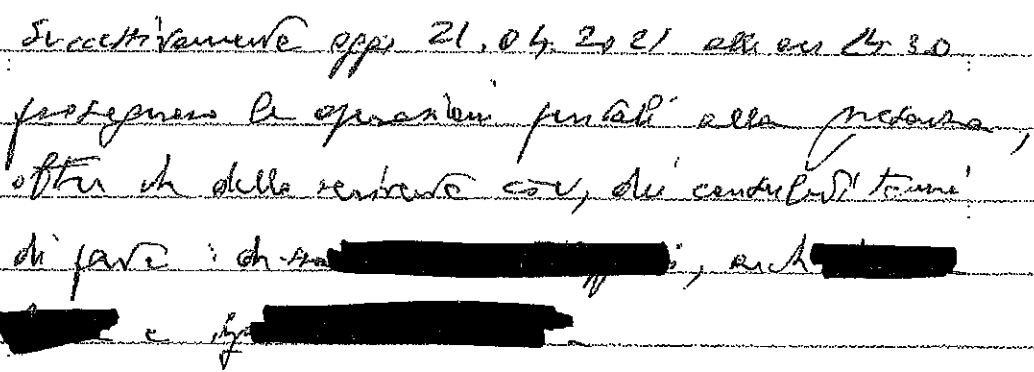 Successivamente oggi 21.04.2021 alle ore 14.30
proseguono le operazioni peritali alla presenza,
oltre che della scrivente CTU, dei consulenti tecnici
di parte: dr.ssa
e